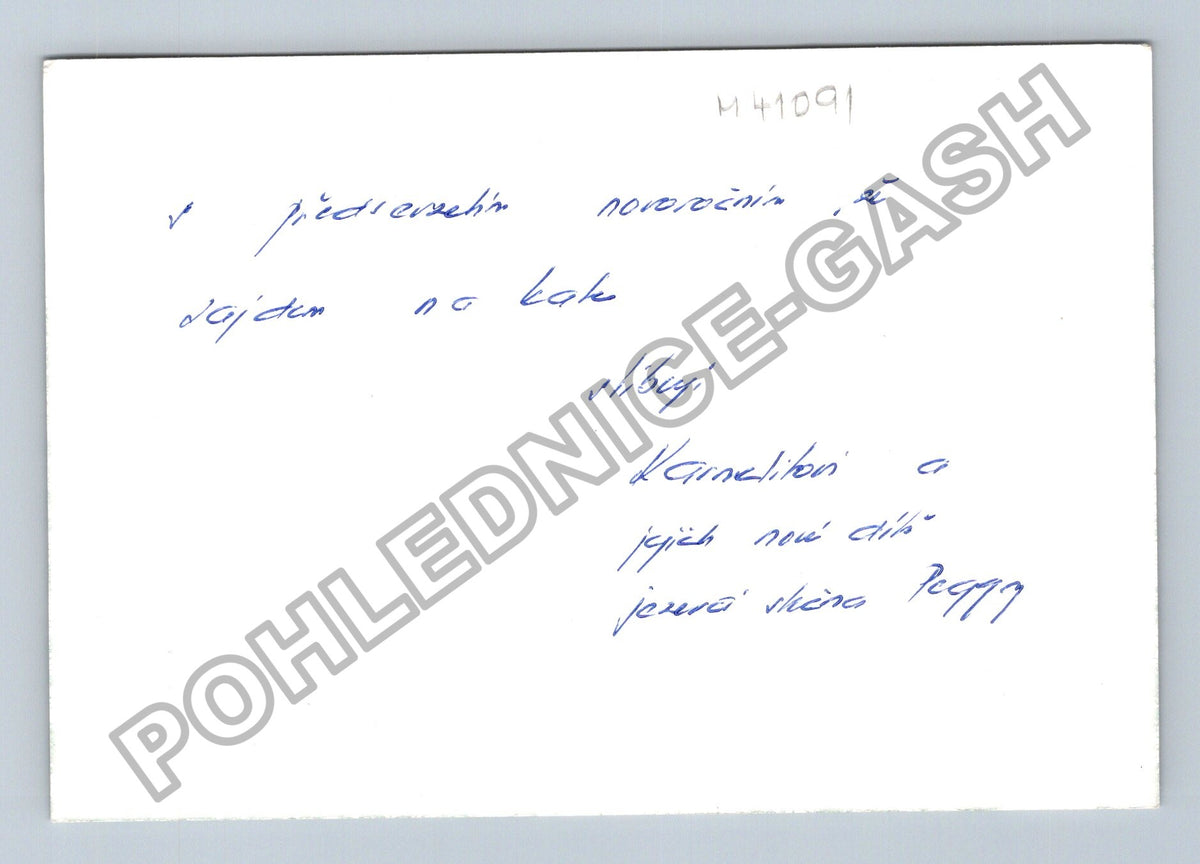 M 41091
s předsevzetím novoročním, že
zajdem na kafe
slibují
Karmelitovi a
jejich nové dítě
jezevčí slečna Peggy
POHLEDNICE-GASH